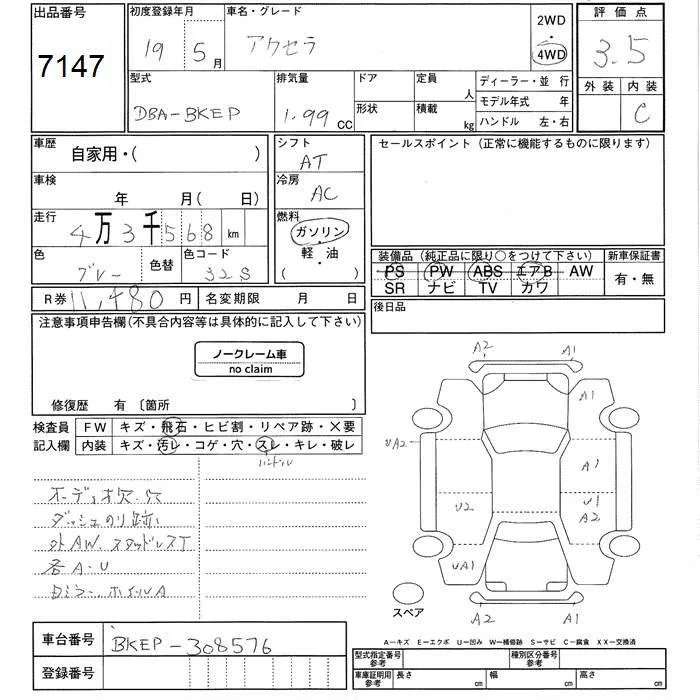 出品番号
7147
初度登録年月
19 5月
車名・グレード
アクセラ
2WD
・
4WD
評価点
3.5
外装 内装
C
型式
DBA-BKEP
排気量
1.99 CC
ドア
形状
定員 人
積載 kg
ディーラー・並行
モデル年式 年
ハンドル 左・右
車歴
自家用・( )
シフト
AT
セールスポイント (正常に機能するものに限ります)
車検
年 月( 日)
冷房
AC
走行
4万3千568 km
燃料
ガソリン
・
軽・油
( )
色
グレー
色替
色コード
32S
装備品 (純正品に限り○をつけて下さい)
新車保証書
PS PW ABS エアB AW
SR ナビ TV カワ
有・無
R券 11,480円
名変期限 月 日
後日品
注意事項申告欄(不具合内容等は具体的に記入して下さい)
ノークレーム車
no claim
修復歴 有 〔箇所 〕
検査員
記入欄
FW キズ・飛石・ヒビ割・リペア跡・×要
内装 キズ・汚レ・コゲ・穴・スレ・キレ・破レ
ハンドル
オーディオ欠・穴
ダッシュのり跡
外AW. スタッドレスT
各A・U
ロミラー. ホイルA
A2 A1
A1
UA2
A1
U2
U1
A2
UA1
A2 A1
スペア
A−キズ E−エクボ U−凹み W−補修跡 S−サビ C−腐食 XX−交換済
車台番号
BKEP-308576
登録番号
型式指定番号
参考
種別区分番号
参考
車庫証明用
参考
長さ cm
幅 cm
高さ cm